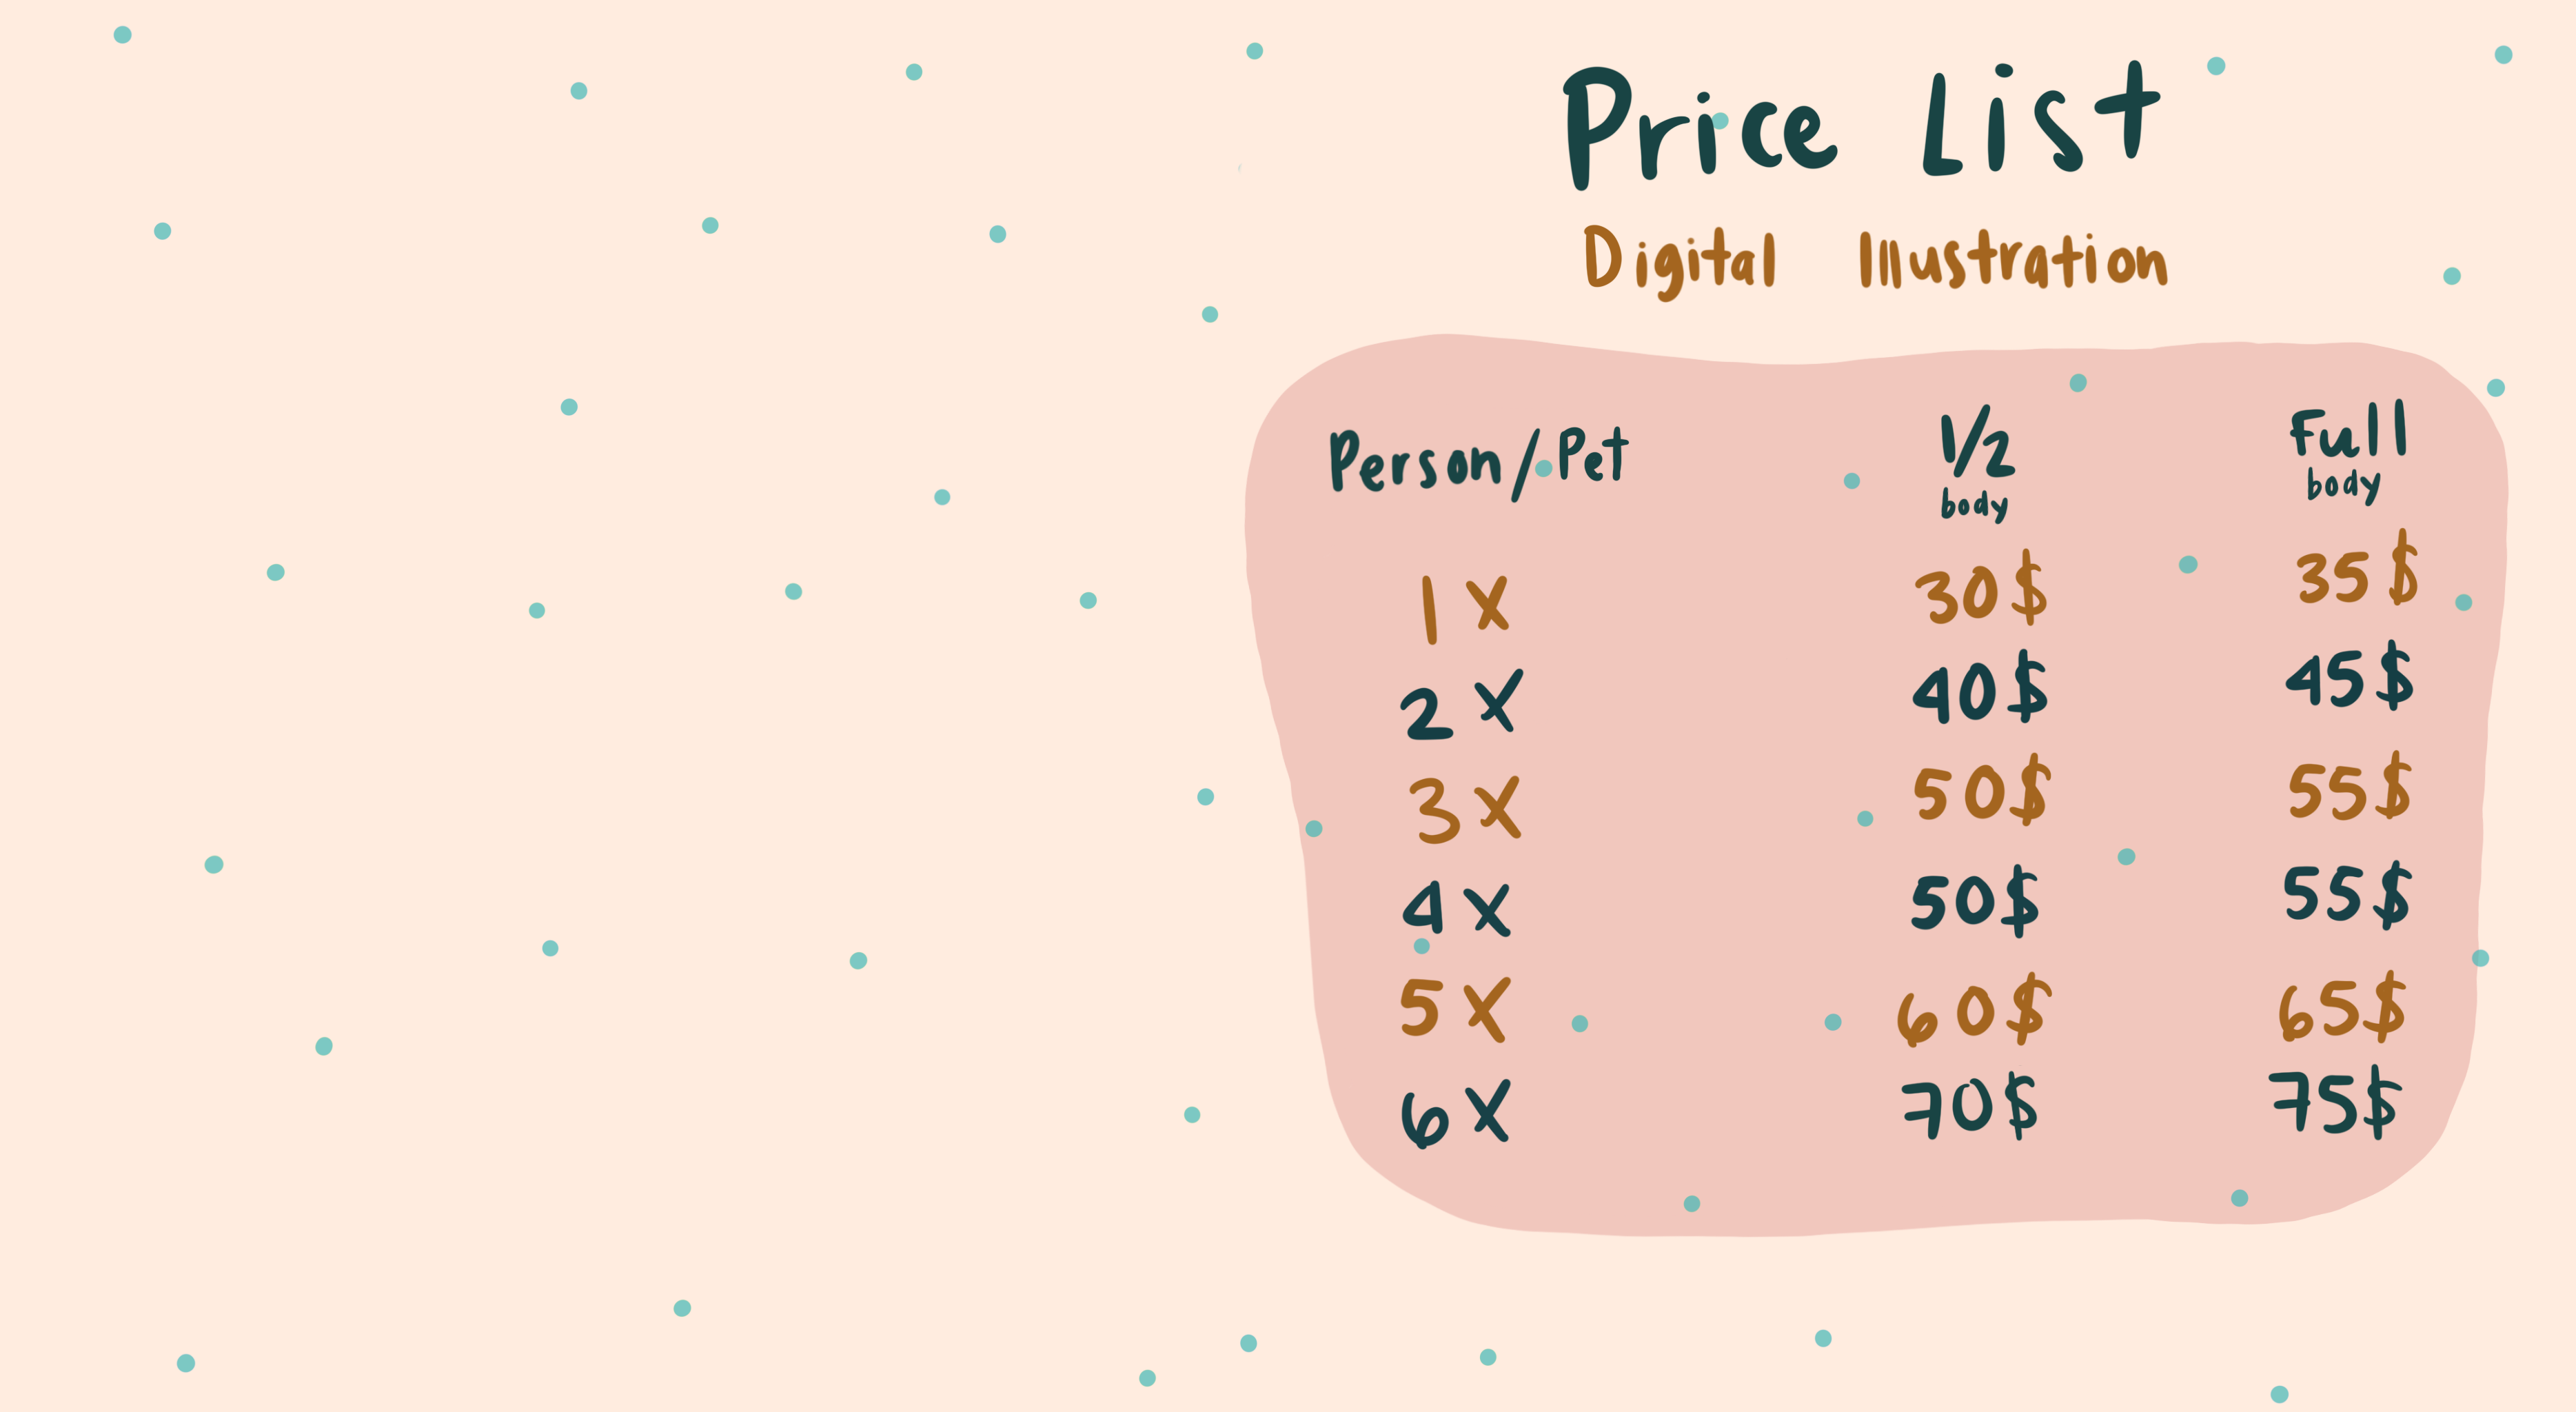 Price List
Digital Illustration
Person/Pet 1/2 body Full body
1X 30$ 35$
2X 40$ 45$
3X 50$ 55$
4X 50$ 55$
5X 60$ 65$
6X 70$ 75$